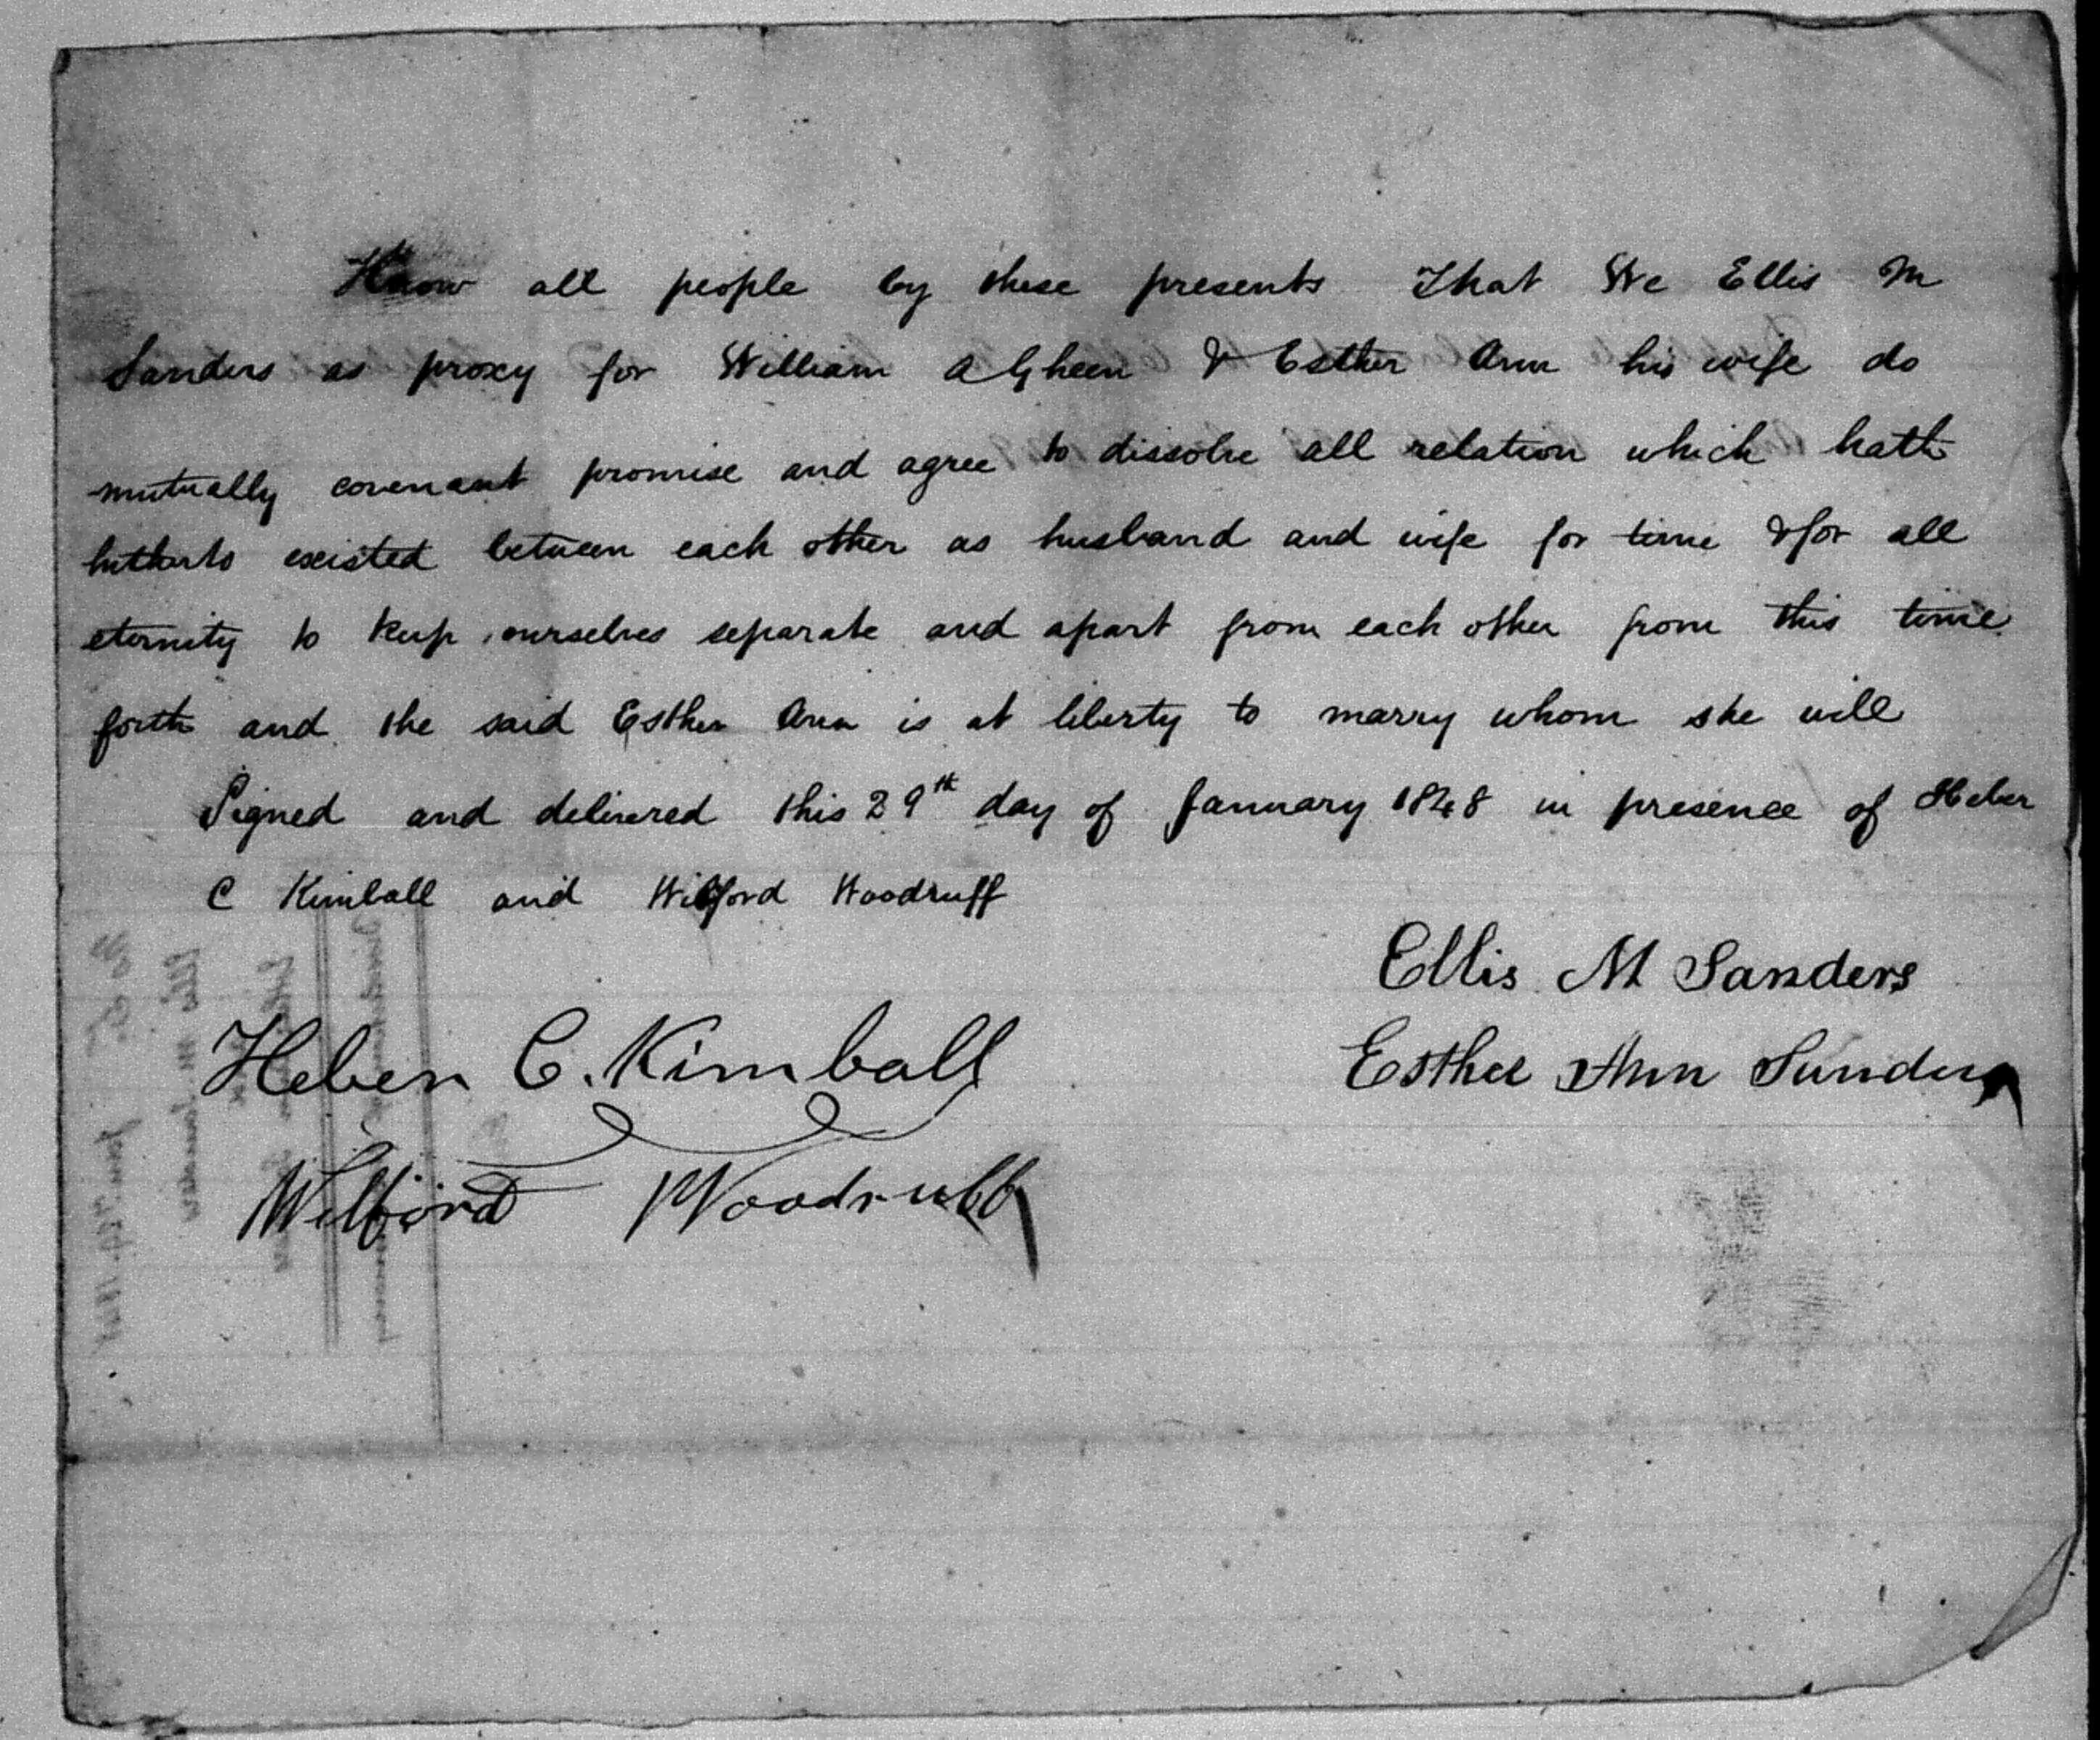 Know all people by these presents That We Ellis M
Sanders as proxy for William A Gheen & Esther Ann his wife do
mutually covenant promise and agree to dissolve all relation which hath
hitherto existed between each other as husband and wife for time & for all
eternity to keep ourselves separate and apart from each other from this time
forth and the said Esther Ann is at liberty to marry whom she will
Signed and delivered this 29th day of January 1848 in presence of Heber
C Kimball and Wilford Woodruff
Ellis M Sanders
Heber C. Kimball
Esther Ann Sanders
Wilford Woodruff